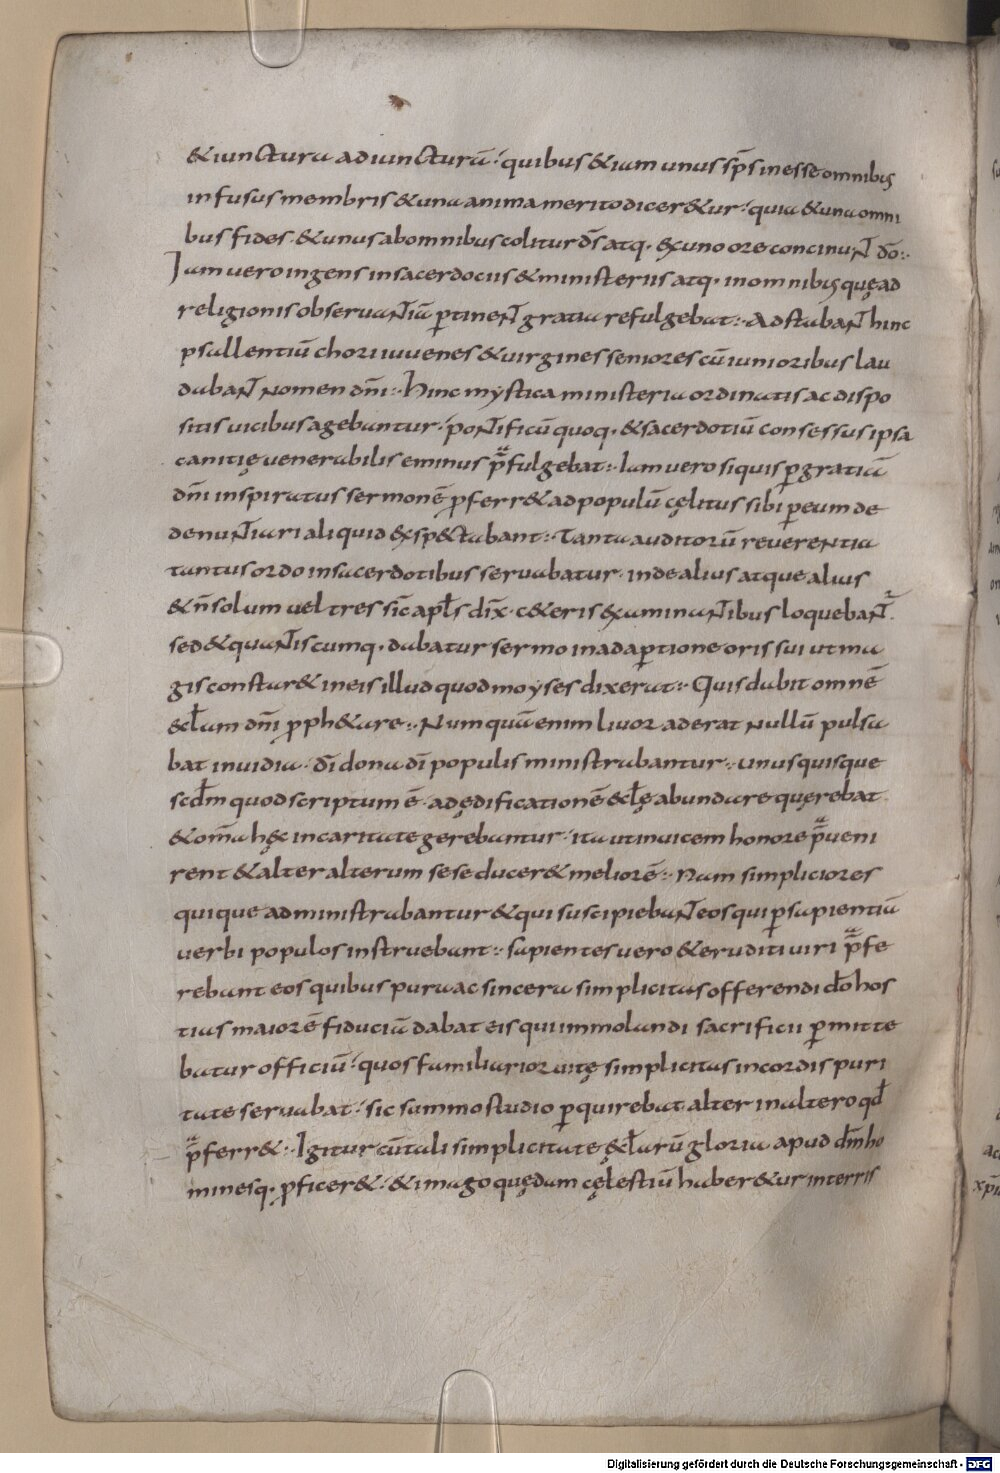 &iunctura adiuncturā. quibus &iam unus sp̄s inesse omnibus
infusus membris &una anima merito dicer&ur. quia &una omni
bus fides. &unus ab omnibus colitur d̄s atq· ex uno ore concinunt dō.
Iam vero ingens in sacerdociis &ministeriis atq· in omnibus quę ad
religionis obseruantiā ꝑtinent gratia refulgebat. Adstabant hinc
psallentiū chori iuvenes &virgines seniores cū iunioribus lau
dabant nomen dn̄i. Hinc mystica ministeria ordinatis ac dispo
sitis uicibus agebantur. pontificū quoq· &sacerdotiū consessus ipsa
canitię venerabilis eminus p̄fulgebat. Iam vero siquis ꝑ gratiā
dn̄i inspiratus sermonē ꝓferr& ad populū cęlitus sibi ꝑ eum de
denuntiari aliquid exsp&tabant. Tanta auditorū reverentia
tantus ordo in sacerdotibus servabatur. inde alius atque alius
&n̄ solum vel tres sic̄ apl̄s dix̄. c&eris examinantibus loquebant̄
sed &quantiscumq· dabatur sermo in adaꝑtione oris sui ut ma
gis constar& in eis illud quod moyses dixerat. Quis dabit omnē
eccl̄am dn̄i ꝓph&are. Numquā enim livor aderat nullū pulsa
bat invidia. dī dona dī populis ministrabantur. unusquisque
scdm̄ quod scriptum ē. ad ędificationē eccl̄ę abundare quęrebat
&om̄a hęc in caritate gerebantur. ita ut invicem honore p̄veni
rent &alter alterum sese ducer& meliorē. Nam simpliciores
quique administrabantur &qui suscipiebant eos qui ꝑ sapientiā
verbi populos instruebant. sapientes vero &eruditi viri p̄fe
rebant eos quibus pura ac sincera simplicitas offerendi dō hos
tias maiorē fiduciā dabat eis qui immolandi sacrificii ꝑmitte
batur officiū. quos familiarior vitę simplicitas in cordis puri
tate servabat. sic summo studio ꝑquirebat alter in altero qd̄
p̄ferr&. Igitur cū tali simplicitate ęccl̄arū gloria apud dm̄ ho
minesq· ꝓficer&. &imago quędam cęlestiū haber&ur in terris